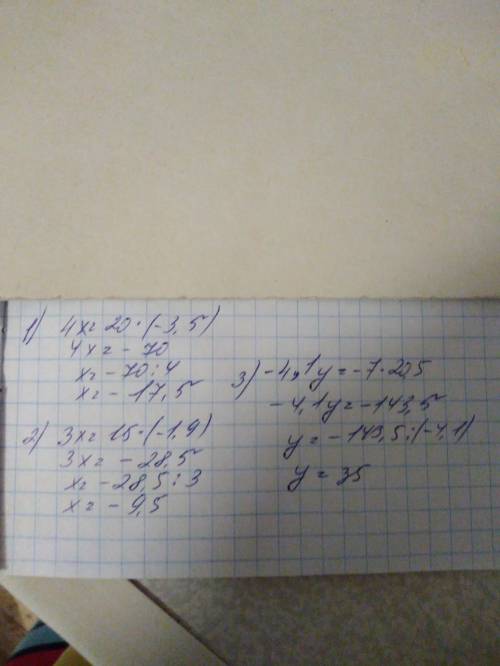 1) 4x = 20 · (-3,5)
4x = -70
x = -70 : 4
x = -17,5
2) 3x = 15 · (-1,9)
3x = -28,5
x = -28,5 : 3
x = -9,5
3) -4,1y = -7 · 20,5
-4,1y = -143,5
y = -143,5 : (-4,1)
y = 35